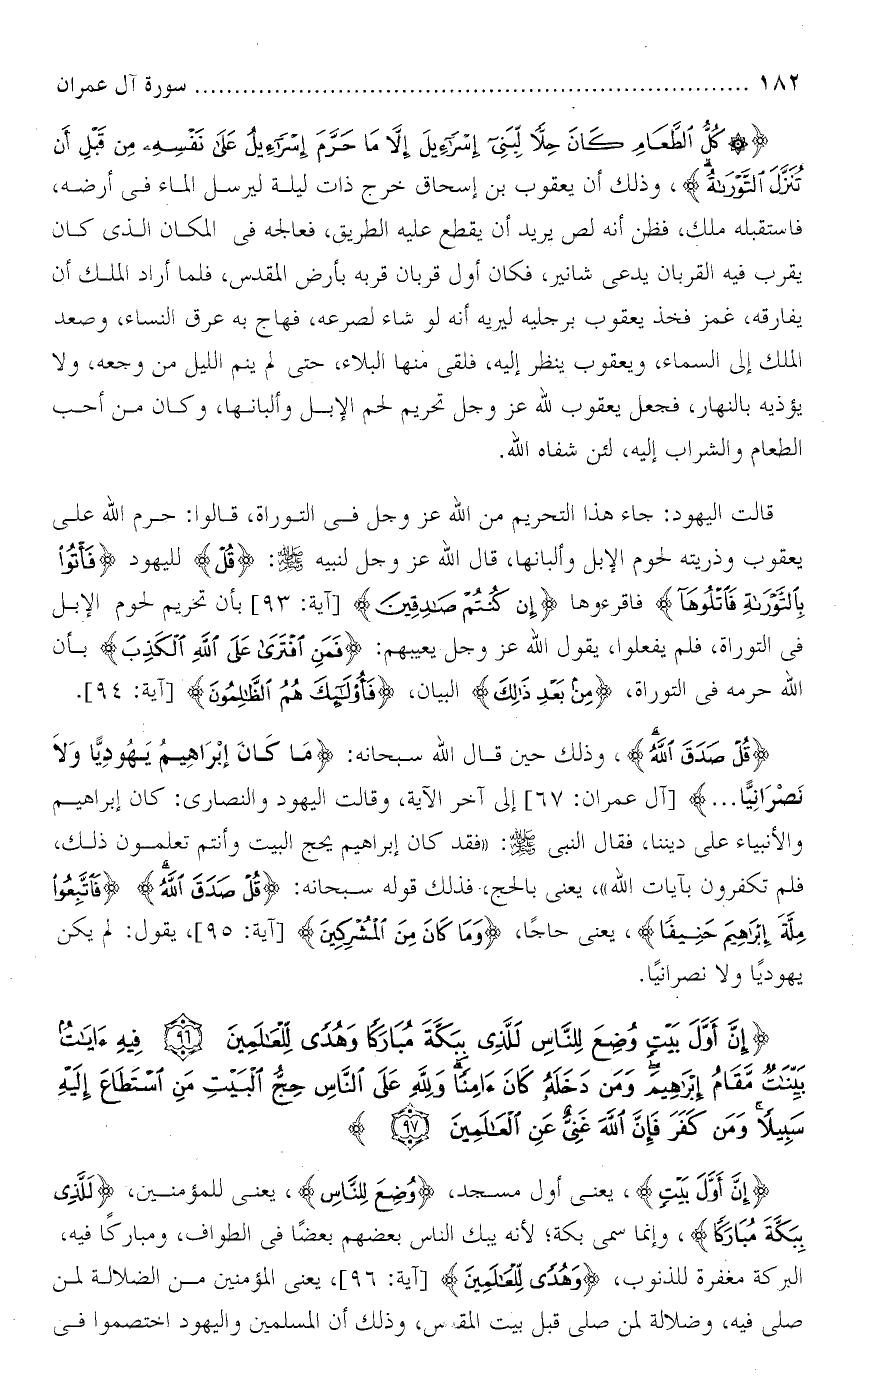 ١٨٢ ........................................................................ سورة آل عمران
﴿۞ كُلُّ ٱلطَّعَامِ كَانَ حِلًّا لِّبَنِىٓ إِسْرَٰٓءِيلَ إِلَّا مَا حَرَّمَ إِسْرَٰٓءِيلُ عَلَىٰ نَفْسِهِۦ مِن قَبْلِ أَن
تُنَزَّلَ ٱلتَّوْرَىٰةُ﴾، وذلك أن يعقوب بن إسحاق خرج ذات ليلة ليرسل الماء فى أرضه،
فاستقبله ملك، فظن أنه لص يريد أن يقطع عليه الطريق، فعالجه فى المكان الذى كان
يقرب فيه القربان يدعى شانير، فكان أول قربان قربه بأرض المقدس، فلما أراد الملك أن
يفارقه، غمز فخذ يعقوب برجليه ليريه أنه لو شاء لصرعه، فهاج به عرق النساء، وصعد
الملك إلى السماء، ويعقوب ينظر إليه، فلقى منها البلاء، حتى لم ينم الليل من وجعه، ولا
يؤذيه بالنهار، فجعل يعقوب لله عز وجل تحريم لحم الإبل وألبانها، وكان من أحب
الطعام والشراب إليه، لئن شفاه الله.
قالت اليهود: جاء هذا التحريم من الله عز وجل فى التوراة، قالوا: حرم الله على
يعقوب وذريته لحوم الإبل وألبانها، قال الله عز وجل لنبيه ﷺ: ﴿قُلْ﴾ لليهود ﴿فَأْتُوا۟
بِٱلتَّوْرَىٰةِ فَٱتْلُوهَآ﴾ فاقرءوها ﴿إِن كُنتُمْ صَٰدِقِينَ﴾ [آية: ٩٣] بأن تحريم لحوم الإبل
فى التوراة، فلم يفعلوا، يقول الله عز وجل يعيبهم: ﴿فَمَنِ ٱفْتَرَىٰ عَلَى ٱللَّهِ ٱلْكَذِبَ﴾ بأن
الله حرمه فى التوراة، ﴿مِنۢ بَعْدِ ذَٰلِكَ﴾ البيان، ﴿فَأُو۟لَٰٓئِكَ هُمُ ٱلظَّٰلِمُونَ﴾ [آية: ٩٤].
﴿قُلْ صَدَقَ ٱللَّهُ﴾، وذلك حين قال الله سبحانه: ﴿مَا كَانَ إِبْرَاهِيمُ يَهُودِيًّا وَلاَ
نَصْرَانِيًّا...﴾ [آل عمران: ٦٧] إلى آخر الآية، وقالت اليهود والنصارى: كان إبراهيم
والأنبياء على ديننا، فقال النبى ﷺ: «فقد كان إبراهيم يحج البيت وأنتم تعلمون ذلك،
فلم تكفرون بآيات الله»، يعنى بالحج، فذلك قوله سبحانه: ﴿قُلْ صَدَقَ ٱللَّهُ﴾ ﴿فَٱتَّبِعُوا۟
مِلَّةَ إِبْرَٰهِيمَ حَنِيفًا﴾، يعنى حاجًا، ﴿وَمَا كَانَ مِنَ ٱلْمُشْرِكِينَ﴾ [آية: ٩٥]، يقول: لم يكن
يهوديًا ولا نصرانيًا.
﴿إِنَّ أَوَّلَ بَيْتٍ وُضِعَ لِلنَّاسِ لَلَّذِى بِبَكَّةَ مُبَارَكًا وَهُدًى لِّلْعَٰلَمِينَ ٩٦ فِيهِ ءَايَٰتٌۢ
بَيِّنَٰتٌ مَّقَامُ إِبْرَٰهِيمَ ۖ وَمَن دَخَلَهُۥ كَانَ ءَامِنًا ۗ وَلِلَّهِ عَلَى ٱلنَّاسِ حِجُّ ٱلْبَيْتِ مَنِ ٱسْتَطَاعَ إِلَيْهِ
سَبِيلًا ۚ وَمَن كَفَرَ فَإِنَّ ٱللَّهَ غَنِىٌّ عَنِ ٱلْعَٰلَمِينَ ٩٧ ﴾
﴿إِنَّ أَوَّلَ بَيْتٍ﴾، يعنى أول مسجد، ﴿وُضِعَ لِلنَّاسِ﴾، يعنى للمؤمنين، ﴿لَلَّذِى
بِبَكَّةَ مُبَارَكًا﴾، وإنما سمى بكة؛ لأنه يبك الناس بعضهم بعضًا فى الطواف، ومباركًا فيه،
البركة مغفرة للذنوب، ﴿وَهُدًى لِّلْعَٰلَمِينَ﴾ [آية: ٩٦]، يعنى المؤمنين من الضلالة لمن
صلى فيه، وضلالة لمن صلى قبل بيت المقدس، وذلك أن المسلمين واليهود اختصموا فى